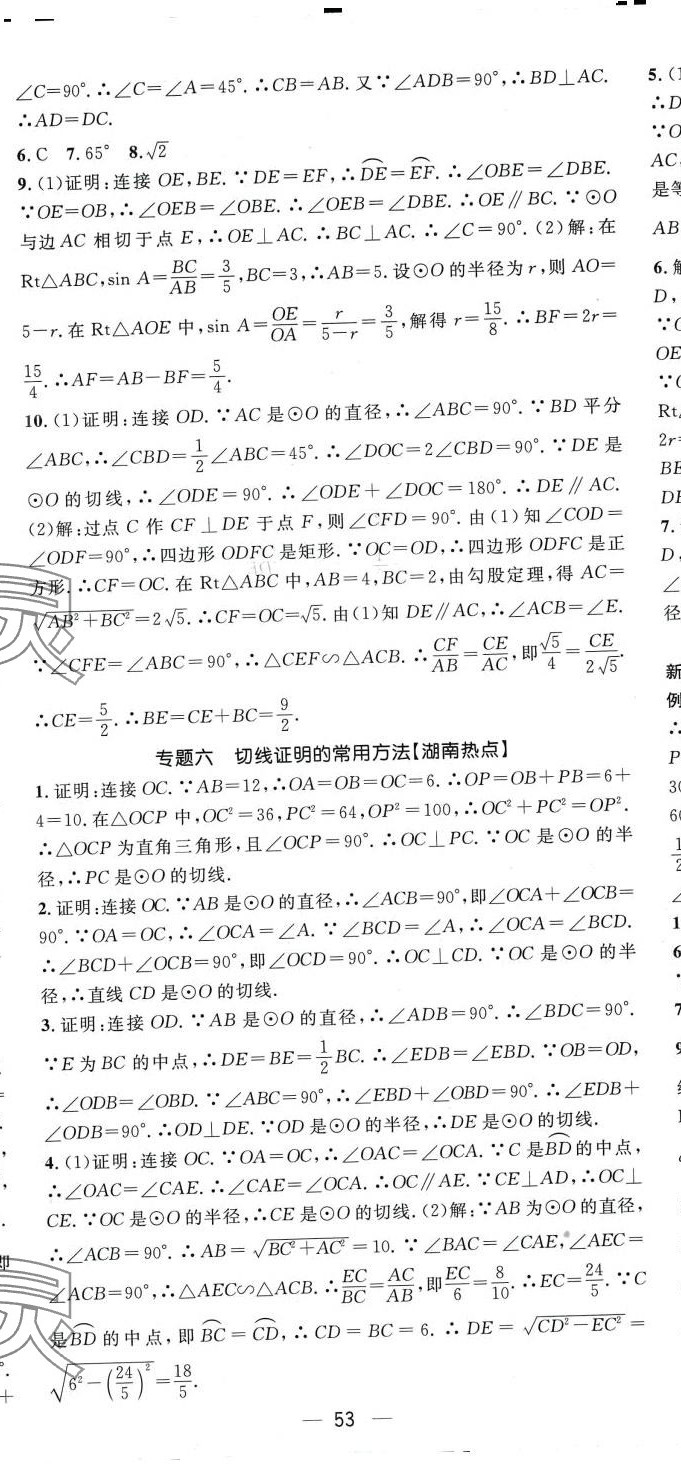 ∠C=90°.∴∠C=∠A=45°.∴CB=AB.又∵∠ADB=90°,∴BD⊥AC.
∴AD=DC.
6.C 7.65° 8.√2
9.(1)证明:连接 OE,BE.∵DE=EF,∴⌒DE=⌒EF.∴∠OBE=∠DBE.
∵OE=OB,∴∠OEB=∠OBE.∴∠OEB=∠DBE.∴OE∥BC.∵⊙O
与边 AC 相切于点 E,∴OE⊥AC.∴BC⊥AC.∴∠C=90°.(2)解:在
Rt△ABC,sin A=BC/AB=3/5,BC=3,∴AB=5.设⊙O 的半径为 r,则 AO=
5-r.在 Rt△AOE 中,sin A=OE/OA=r/(5-r)=3/5,解得 r=15/8.∴BF=2r=
15/4.∴AF=AB-BF=5/4.
10.(1)证明:连接 OD.∵AC 是⊙O 的直径,∴∠ABC=90°.∵BD 平分
∠ABC,∴∠CBD=1/2∠ABC=45°.∴∠DOC=2∠CBD=90°.∵DE 是
⊙O 的切线,∴∠ODE=90°.∴∠ODE+∠DOC=180°.∴DE∥AC.
(2)解:过点 C 作 CF⊥DE 于点 F,则∠CFD=90°.由(1)知∠COD=
∠ODF=90°,∴四边形 ODFC 是矩形.∵OC=OD,∴四边形 ODFC 是正
方形.∴CF=OC.在 Rt△ABC 中,AB=4,BC=2,由勾股定理,得 AC=
√(AB²+BC²)=2√5.∴CF=OC=√5.由(1)知 DE∥AC,∴∠ACB=∠E.
∵∠CFE=∠ABC=90°,∴△CEF∽△ACB.∴CF/AB=CE/AC,即√5/4=CE/2√5.
∴CE=5/2.∴BE=CE+BC=9/2.
专题六 切线证明的常用方法【湖南热点】
1.证明:连接 OC.∵AB=12,∴OA=OB=OC=6.∴OP=OB+PB=6+
4=10.在△OCP 中,OC²=36,PC²=64,OP²=100,∴OC²+PC²=OP².
∴△OCP 为直角三角形,且∠OCP=90°.∴OC⊥PC.∵OC 是⊙O 的半
径,∴PC 是⊙O 的切线.
2.证明:连接 OC.∵AB 是⊙O 的直径,∴∠ACB=90°,即∠OCA+∠OCB=
90°.∵OA=OC,∴∠OCA=∠A.∵∠BCD=∠A,∴∠OCA=∠BCD.
∴∠BCD+∠OCB=90°,即∠OCD=90°.∴OC⊥CD.∵OC 是⊙O 的半
径,∴直线 CD 是⊙O 的切线.
3.证明:连接 OD.∵AB 是⊙O 的直径,∴∠ADB=90°.∴∠BDC=90°.
∵E 为 BC 的中点,∴DE=BE=1/2BC.∴∠EDB=∠EBD.∵OB=OD,
∴∠ODB=∠OBD.∵∠ABC=90°,∴∠EBD+∠OBD=90°.∴∠EDB+
∠ODB=90°.∴OD⊥DE.∵OD 是⊙O 的半径,∴DE 是⊙O 的切线.
4.(1)证明:连接 OC.∵OA=OC,∴∠OAC=∠OCA.∵C 是⌒BD的中点,
∴∠OAC=∠CAE.∴∠CAE=∠OCA.∴OC∥AE.∵CE⊥AD,∴OC⊥
CE.∵OC 是⊙O 的半径,∴CE 是⊙O 的切线.(2)解:∵AB 为⊙O 的直径,
∴∠ACB=90°.∴AB=√(BC²+AC²)=10.∵∠BAC=∠CAE,∠AEC=
∠ACB=90°,∴△AEC∽△ACB.∴EC/BC=AC/AB,即EC/6=8/10.∴EC=24/5.∵C
是⌒BD的中点,即⌒BC=⌒CD,∴CD=BC=6.∴DE=√(CD²-EC²)=
√(6²-(24/5)²)=18/5.
— 53 —
5.(1
∴D
∵O
AC,
是等
AB
6.解
D,
OE
Rt
2r=
BE
DE
7.
D,
∠
径
新
例
∴
P
30
60
1/2
∠
1
6
7
9
即
灵
灵